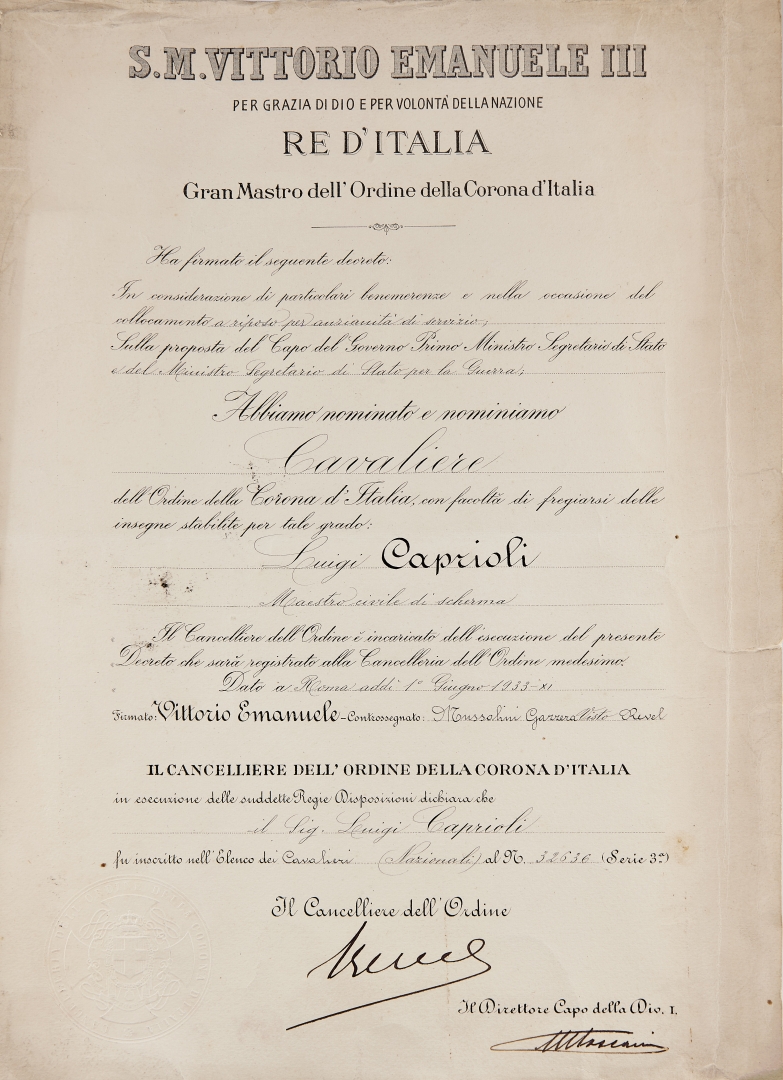 S.M. VITTORIO EMANUELE III
PER GRAZIA DI DIO E PER VOLONTÀ DELLA NAZIONE
RE D'ITALIA
Gran Mastro dell'Ordine della Corona d'Italia
Ha firmato il seguente decreto:
In considerazione di particolari benemerenze e nella occasione del
collocamento a riposo per anzianità di servizio;
Sulla proposta del Capo del Governo Primo Ministro Segretario di Stato
e del Ministro Segretario di Stato per la Guerra;
Abbiamo nominato e nominiamo
Cavaliere
dell'Ordine della Corona d'Italia, con facoltà di fregiarsi delle
insegne stabilite per tale grado:
Luigi Caprioli
Maestro civile di scherma
Il Cancelliere dell'Ordine è incaricato dell'esecuzione del presente
Decreto che sarà registrato alla Cancelleria dell'Ordine medesimo.
Dato a Roma addì 1° Giugno 1933-XI
Firmato: Vittorio Emanuele - Controssegnato: Mussolini Gazzera Visto Revel
IL CANCELLIERE DELL'ORDINE DELLA CORONA D'ITALIA
in esecuzione delle suddette Regie Disposizioni dichiara che
il Sig. Luigi Caprioli
fu inscritto nell'Elenco dei Cavalieri (Nazionali) al N. 32636 (Serie 3ª)
Il Cancelliere dell'Ordine
Revel
Il Direttore Capo della Div. I.